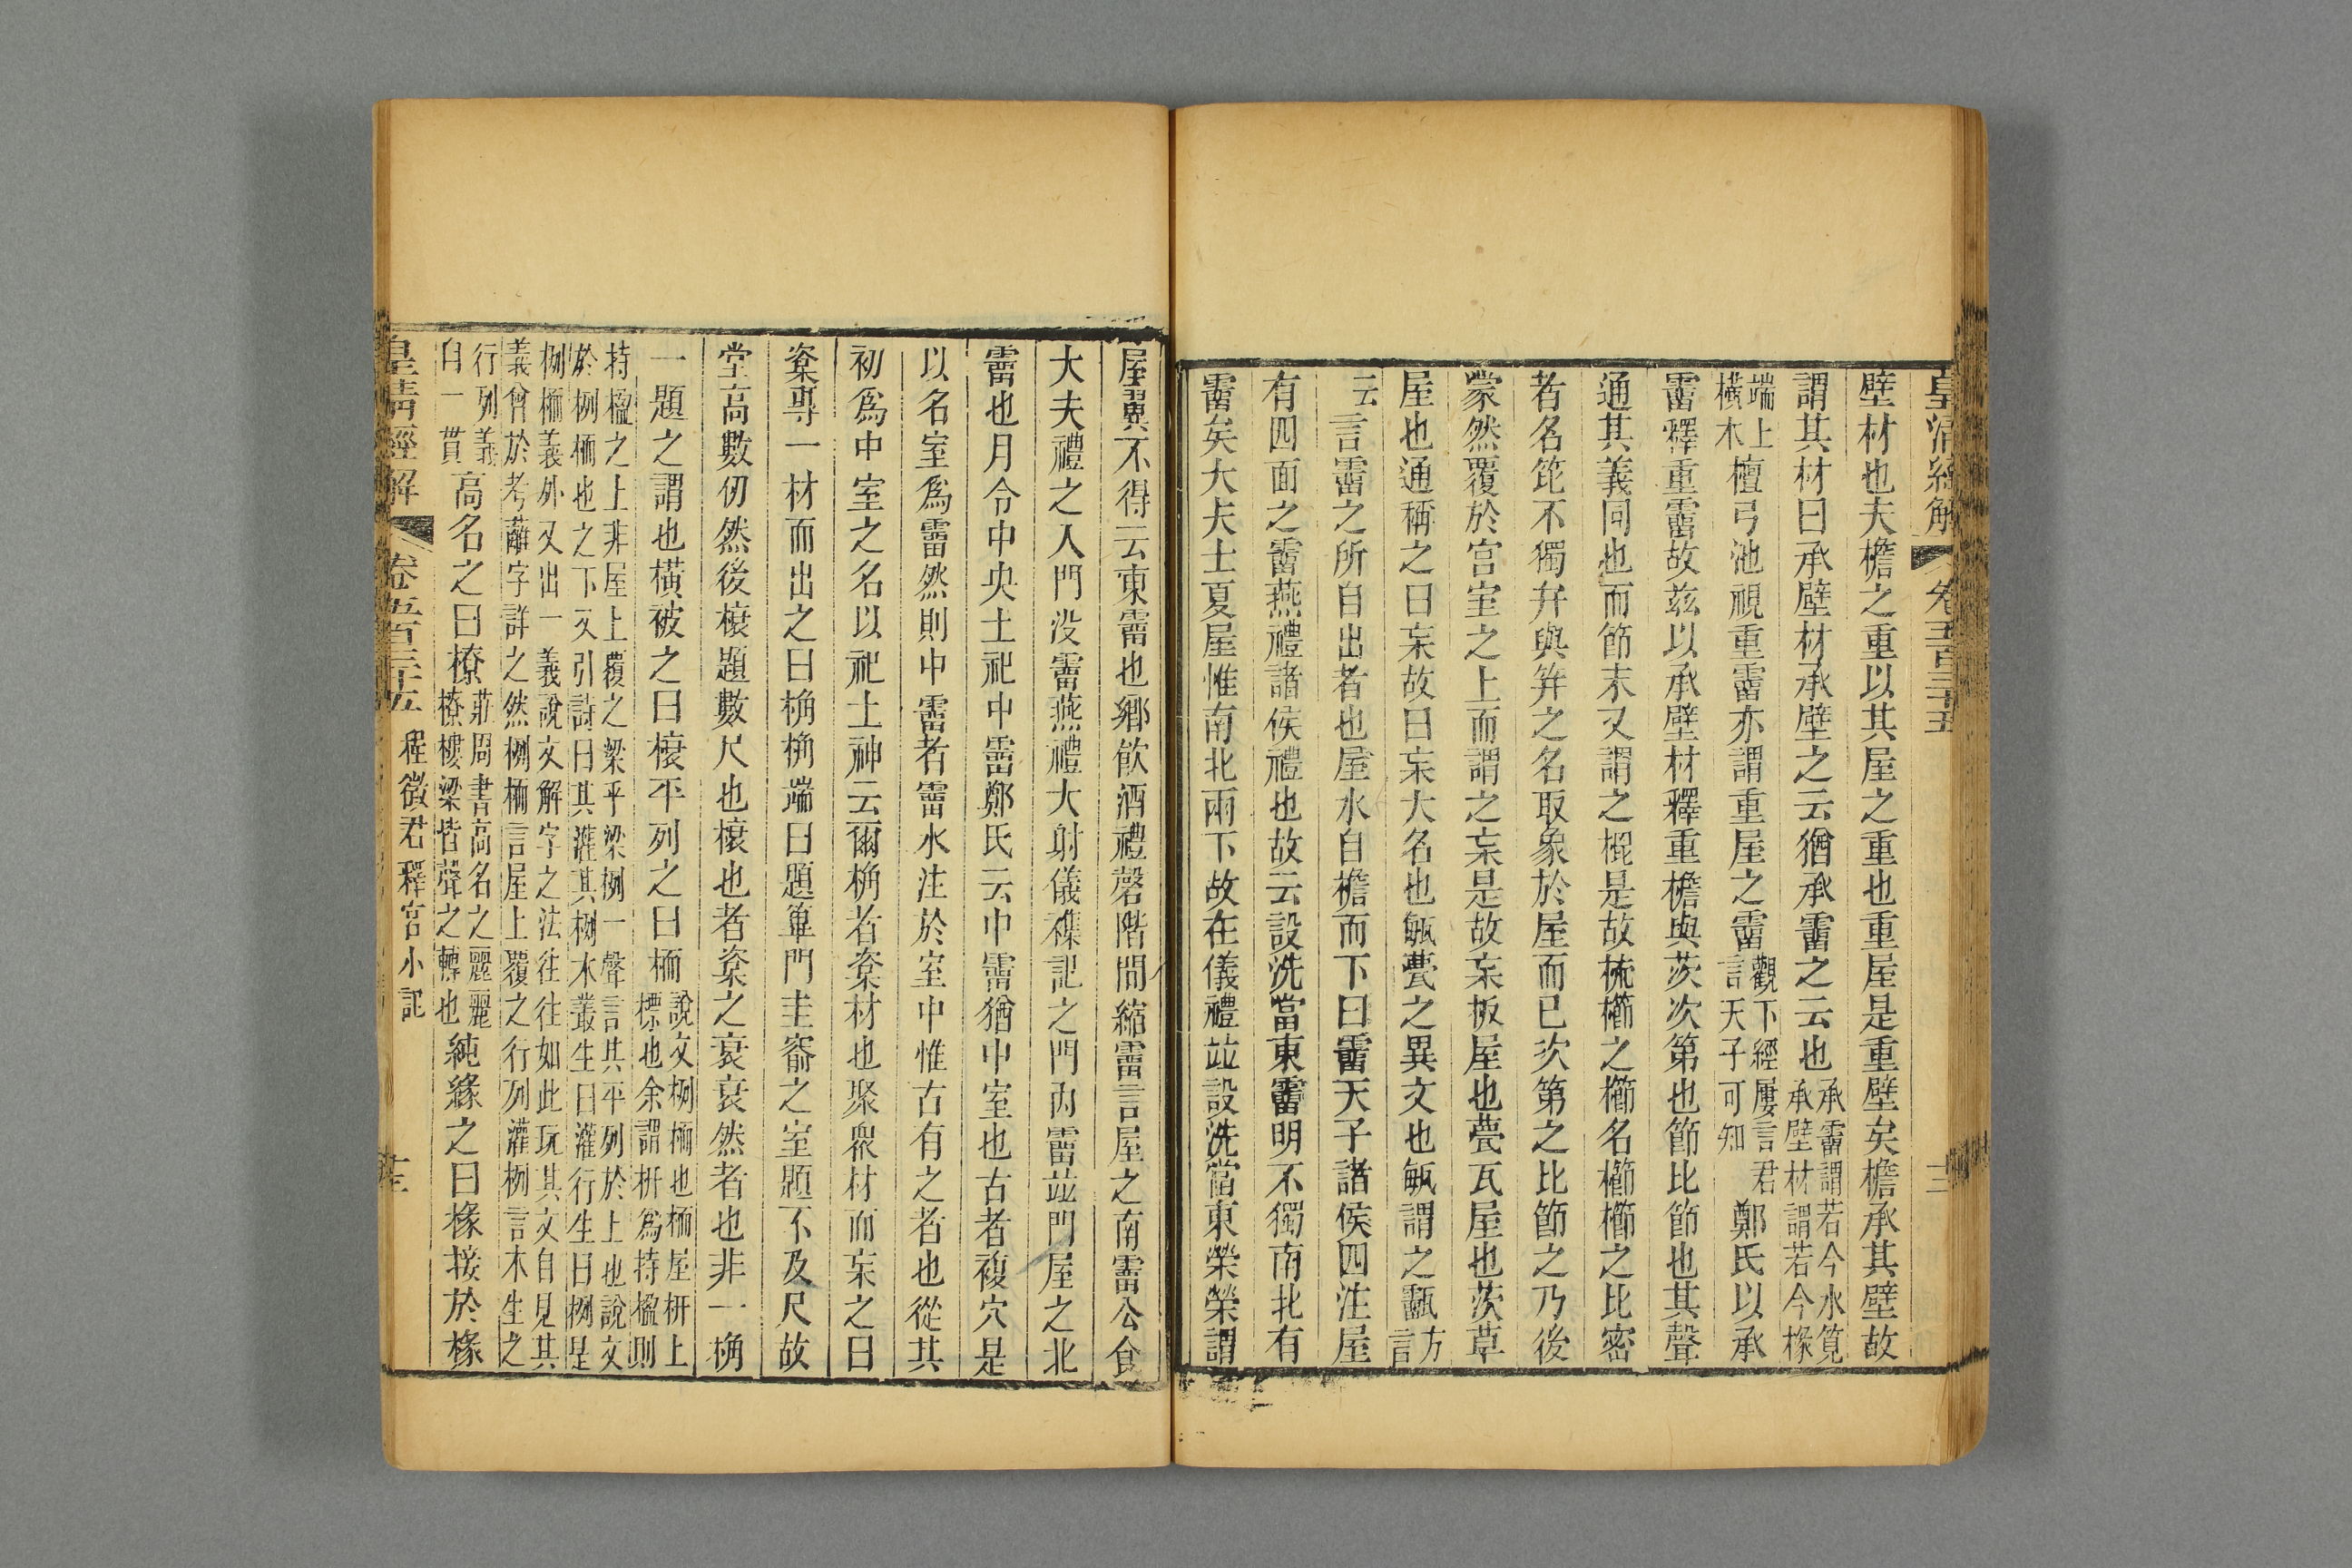 皇清經解 卷五百三十五 十三
壁材也夫檐之重以其屋之重也重屋是重壁矣檐承其壁故
謂其材曰承壁材承壁之云猶承霤之云也承霤謂若今水筧承壁材謂若今椽
端上橫木檀弓池視重霤亦謂重屋之霤觀下經屢言君言天子可知鄭氏以承
霤釋重霤故兹以承壁材釋重檐與茨次第也節比節也其聲
通其義同也而節末又謂之榥是故梳櫛之櫛名櫛櫛之比密
者名笓不獨弁與笄之名取象於屋而已次第之比節之乃後
蒙然覆於宮室之上而謂之宎是故宎板屋也甍瓦屋也茨草
屋也通稱之曰宎故曰宎大名也甂甍之異文也甂謂之甑方言
云言霤之所自出者也屋水自檐而下曰霤天子諸侯四注屋
有四面之霤燕禮諸侯禮也故云設洗當東霤明不獨南北有
霤矣大夫士夏屋惟南北兩下故在儀禮竝設洗當東榮榮謂
屋翼不得云東霤也鄉飲酒禮磬階間縮霤言屋之南霤公食
大夫禮之入門没霤燕禮大射儀襍記之門內霤竝門屋之北
霤也月令中央土祀中霤鄭氏云中霤猶中室也古者複穴是
以名室爲霤然則中霤者霤水注於室中惟古有之者也從其
初爲中室之名以祀土神云爾桷者楶材也聚衆材而宎之曰
楶專一材而出之曰桷桷端曰題篳門圭窬之室題不及尺故
堂高數仞然後榱題數尺也榱也者楶之衰衰然者也非一桷
一題之謂也橫被之曰榱平列之曰栭說文栵栭也栭屋枅上標也余謂枅爲持楹則
持楹之上非屋上覆之梁乎梁栵一聲言其平列於上也說文於栵栭也之下又引詩曰其灌其栵木叢生曰灌行生曰栵是
栵栭義外又出一義說文解字之法往往如此玩其文自見其義曾於考蘺字詳之然栵栭言屋上覆之行列灌栵言木生之
行列義自一貫高名之曰橑莊周書高名之麗麗橑樓梁皆聲之轉也純緣之曰椽接於椽
皇清經解 卷五百三十五 程徵君釋宮小記 十三